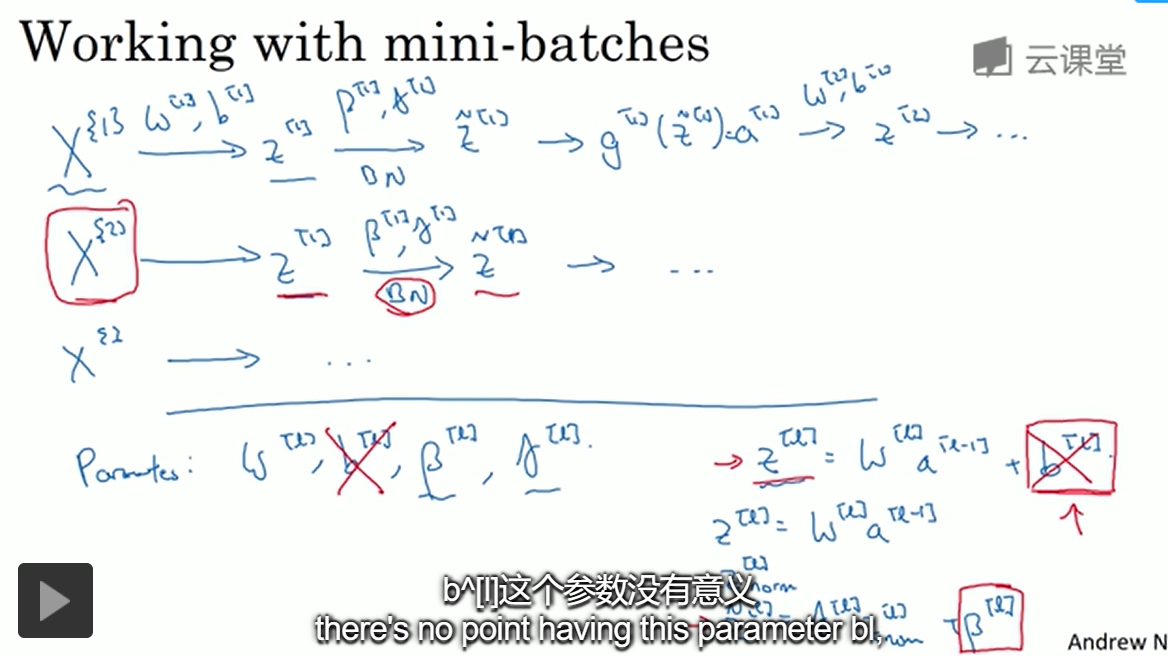 Working with mini-batches
云课堂
X^{1} W^[1], b^[1] → z^[1] β^[1], γ^[1] → BN z̃^[1] → g^[1](z̃^[1]) = a^[1] W^[2], b^[2] → z^[2] → ...
X^{2} → z^[1] β^[1], γ^[1] → BN z̃^[1] → ...
X^{} → ...
Parameters: W^[l], b^[l], β^[l], γ^[l].
→ z^[l] = W^[l] a^[l-1] + b^[l].
z^[l] = W^[l] a^[l-1]
norm
β^[l]
b^[l]这个参数没有意义
there's no point having this parameter bl,
Andrew N